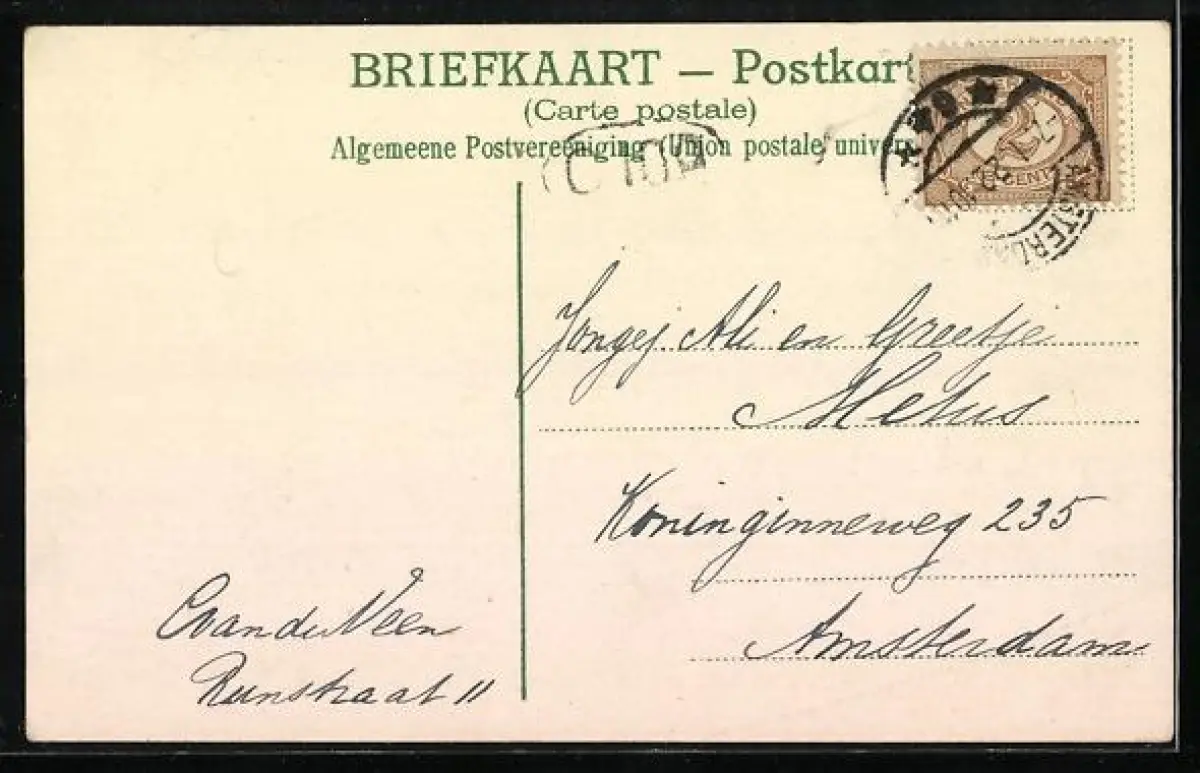 BRIEFKAART — Postkart
(Carte postale)
Algemeene Postvereeniging (Union postale univer
AMSTERDA
CENT
Jongej Ali en Greetje
Metus
Koninginneweg 235
Amsterdam
C van der Veen
Runstraat 11